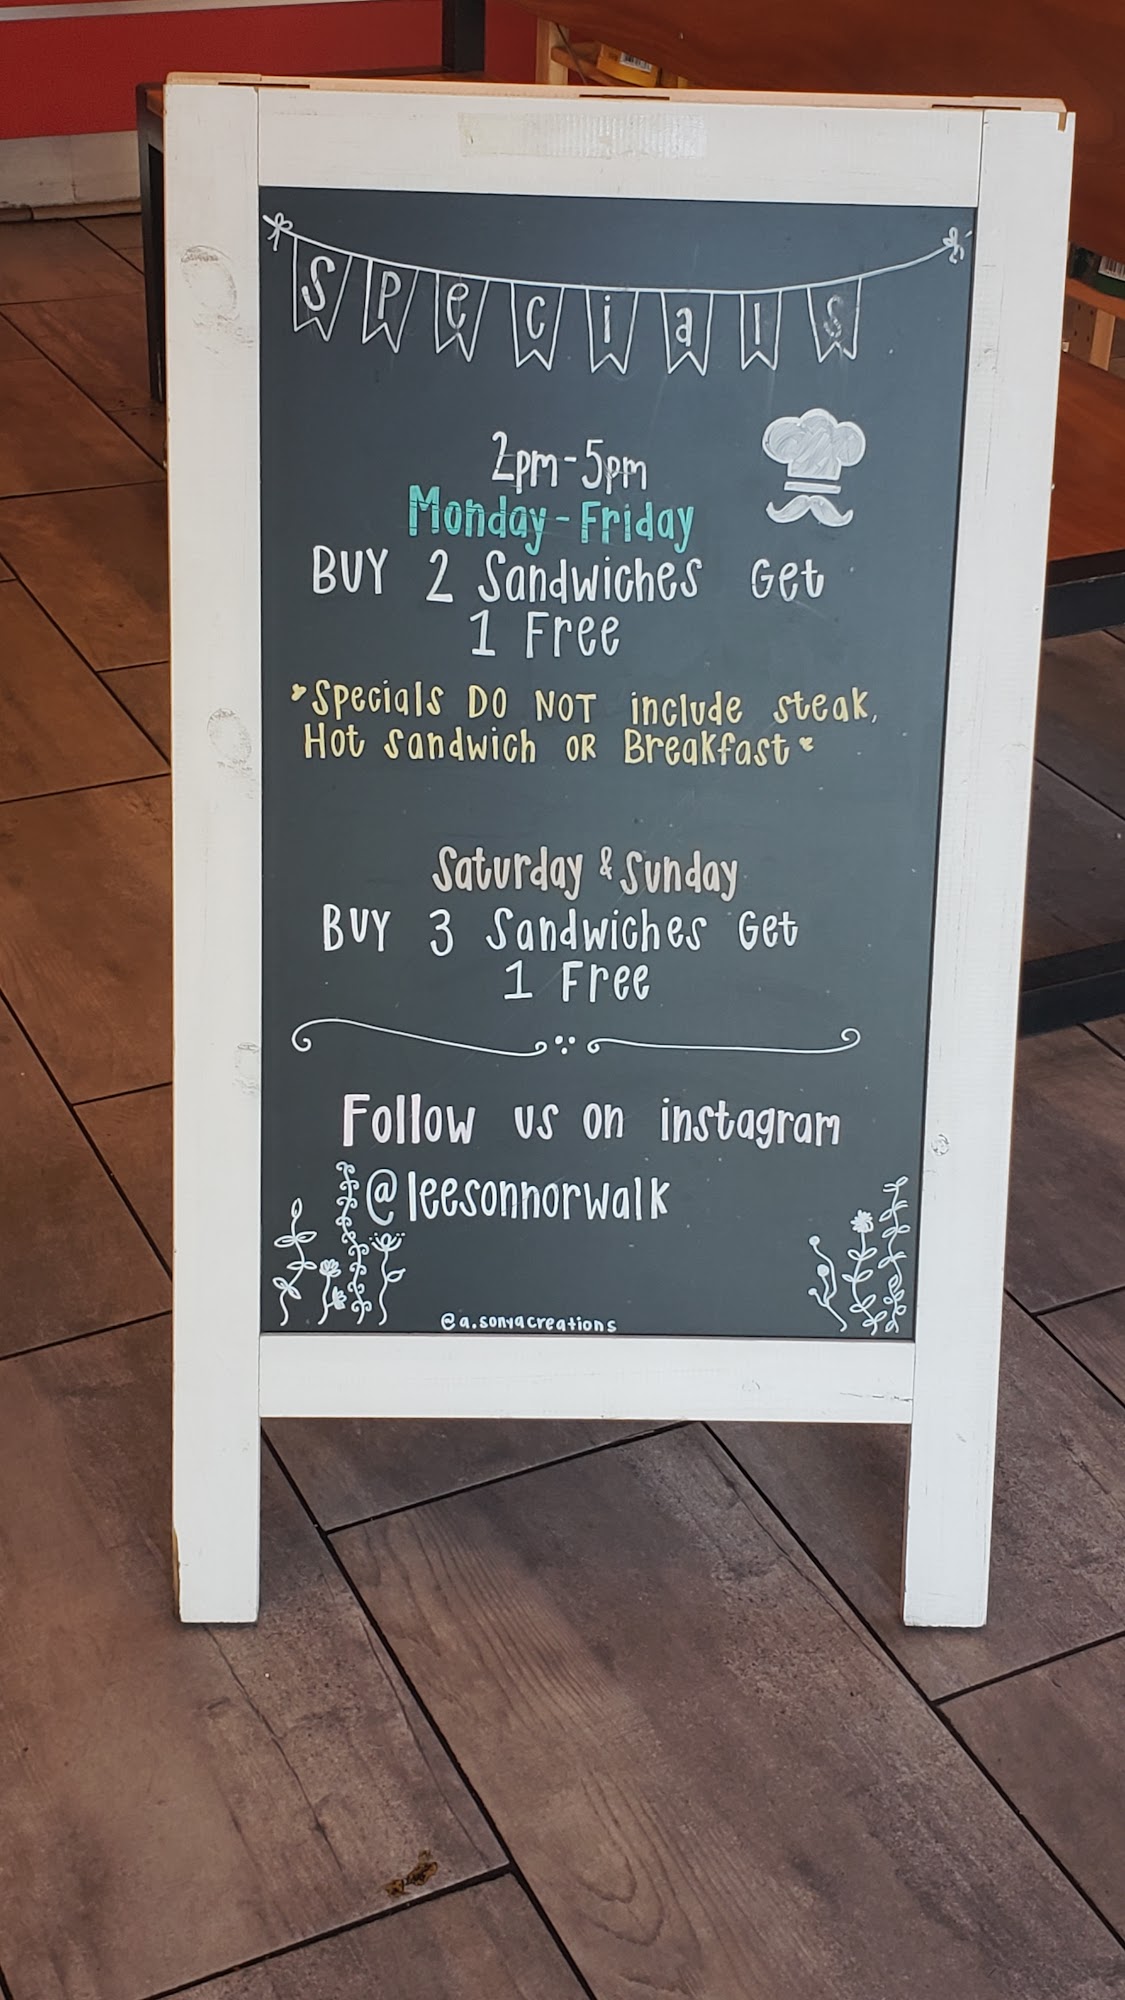 Specials
2pm-5pm
Monday-Friday
BUY 2 Sandwiches Get
1 Free
*Specials DO NOT include steak,
Hot sandwich OR Breakfast*
Saturday & Sunday
BUY 3 Sandwiches Get
1 Free
Follow us on instagram
@leesonnorwalk
@a.sonyacreations